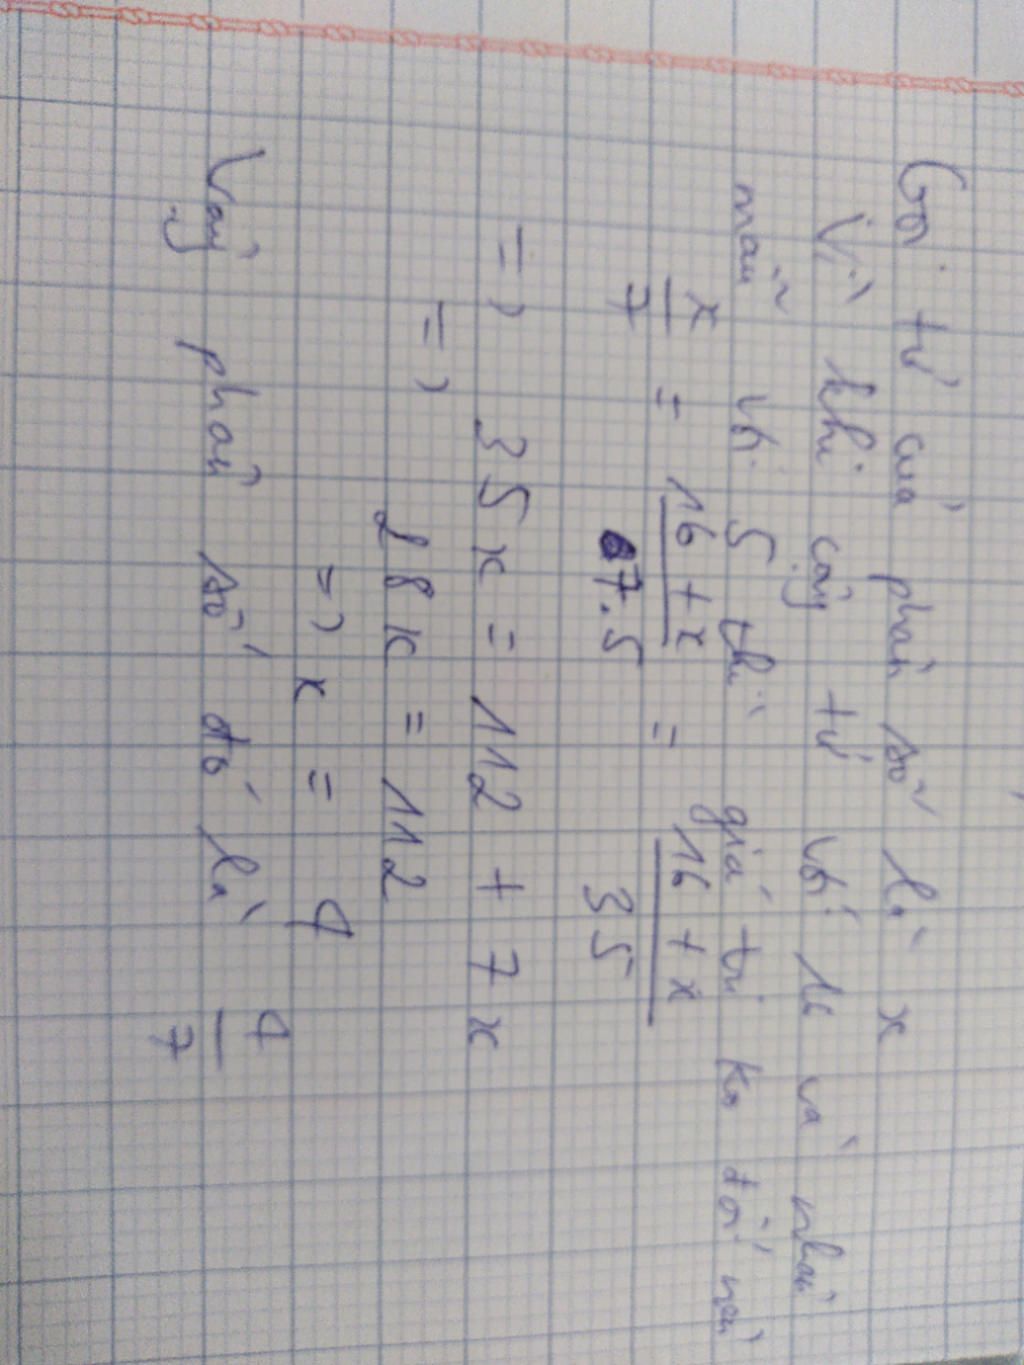 Gọi tử của phân số là x
Vì khi cộng tử với 16 và nhân
mẫu với 5 thì giá trị ko đổi nên
x/7 = 16+x/7.5 = 16+x/35
=> 35x = 112 + 7x
=> 28x = 112
=> x = 4
Vậy phân số đó là 4/7